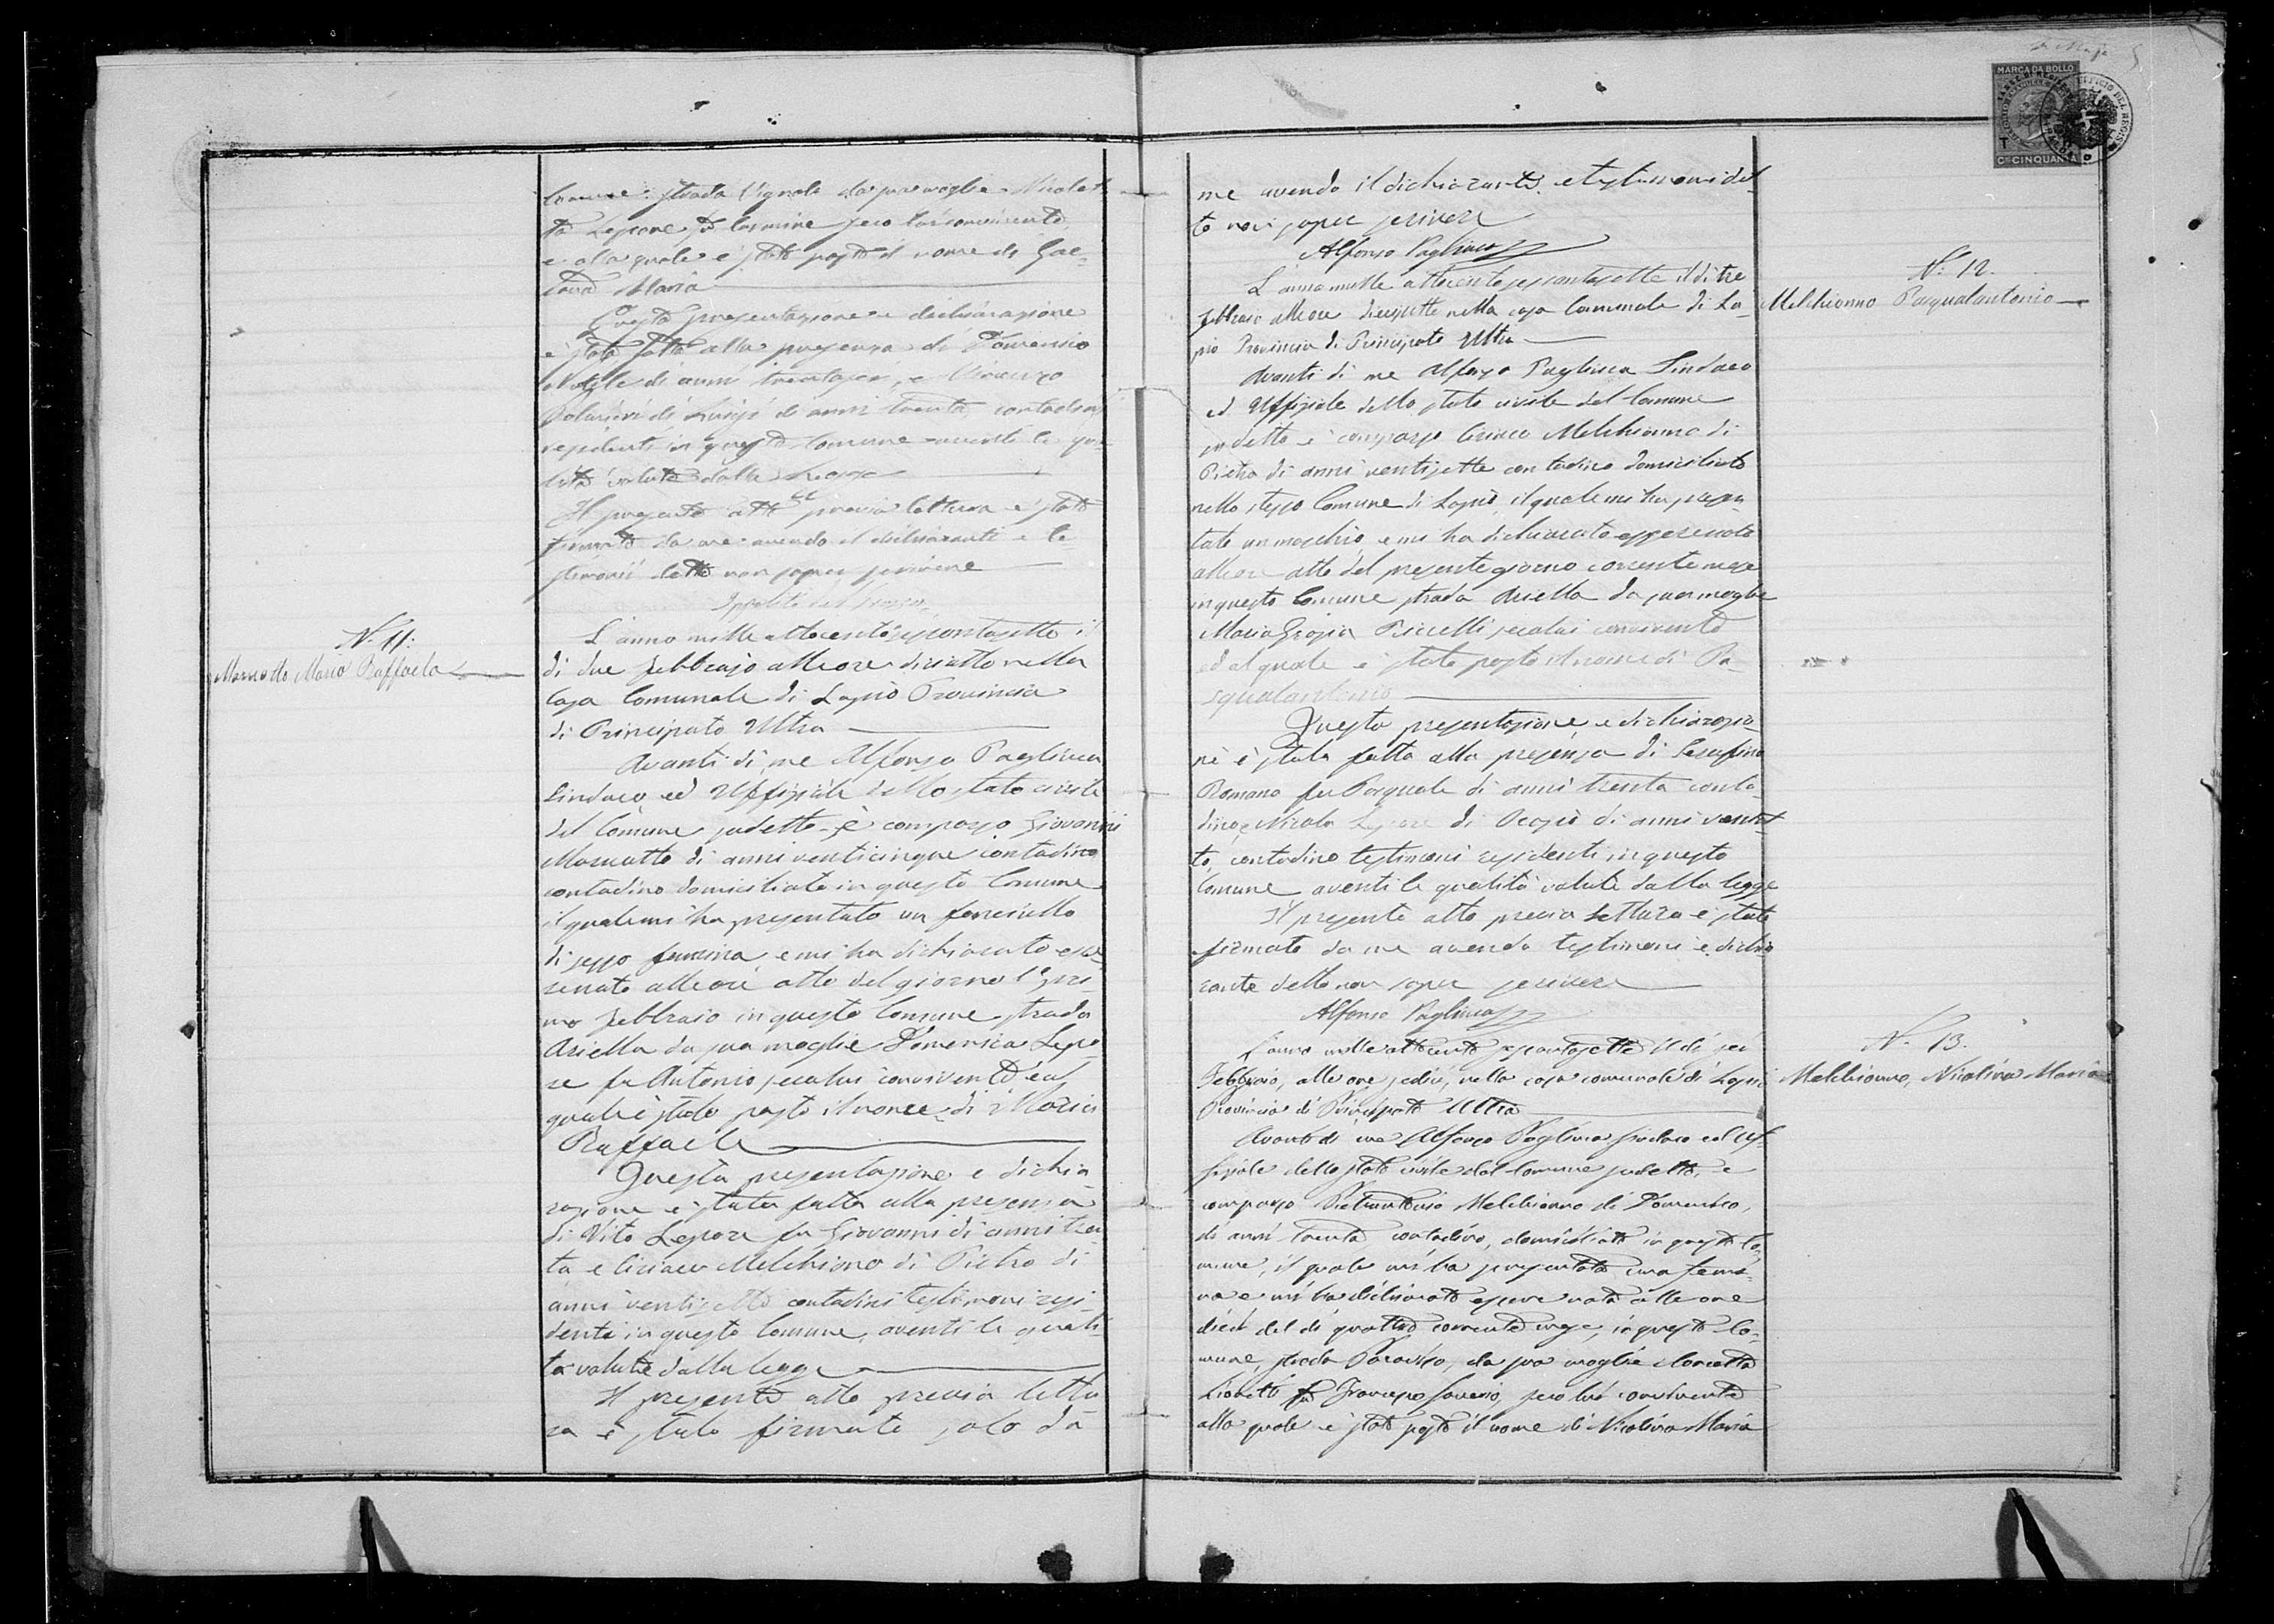 Comune strada Vignali da sua moglie Nicolet
ta Lepore fu Carmine seco lui convivente
e alla quale è stato posto il nome di Gae-
tana Maria
Questa presentazione e dichiarazione
è stata fatta alla presenza di Domenico
di anni trentasei, e
di Luigi di anni trenta contadini
residenti in questo Comune aventi le qua-
lità volute dalla Legge
Il presente atto previa lettura è stato
firmato da me avendo il dichiarante e te-
stimonii detto non saper scrivere
N. 11.
Marcotto Maria Raffaela
L'anno mille ottocento sessantasette il
dì due febbrajo alle ore diciotto nella
Casa Comunale di Lapio Provincia
di Principato Ultra
Avanti di me Alfonso Pagliuca
Sindaco ed Uffiziale dello stato civile
del Comune sudetto è comparso Giovanni
di anni venticinque contadino
contadino domiciliato in questo Comune
il quale mi ha presentato un fanciullo
di sesso femina e mi ha dichiarato esse
re nato alle ore otto del giorno 1° pri-
mo febbraio in questo Comune strada
Ariella da sua moglie Domenica Lepo
re fu Antonio seco lui convivente ed al
quale è stato posto il nome di Maria
Raffaela
Questa presentazione e dichia-
razione è stata fatta alla presenza
di Vito Lepore fu Giovanni di anni tren
ta e Ciriaco Melchiono di Pietro di
anni ventisette contadini testimoni resi-
denti in questo Comune, aventi le quali-
tà volute dalla legge
Il presente atto previa lettu
ra è stato firmato solo da
MARCA DA BOLLO
Cmi CINQUANTA
me avendo il dichiarante e testimoni det
to non saper scrivere
Alfonso Pagliuca
N. 12.
Melchionno Pasqualantonio
L'anno mille ottocento sessantasette il dì tre
febbraio alle ore diecisette nella casa Comunale di La-
pio Provincia di Principato Ultra
Avanti di me Alfonzo Pagliuca Sindaco
ed Uffiziale dello stato civile del Comune
sudetto è comparso Ciriaco Melchionno di
Pietro di anni ventisette contadino domiciliato
nello stesso Comune di Lapio, il quale mi ha presen
tato un maschio, e mi ha dichiarato essere nato
alle ore otto del presente giorno corrente mese
in questo Comune strada Ariella da sua moglie
Maria Grazia seco lui convivente
ed al quale è stato posto il nome di Pa-
squalantonio
Questa presentazione e dichiarazio-
ne è stata fatta alla presenza di Serafino
Romano fu Pasquale di anni trenta conta-
dino e Nicola Lepore di di anni vent
to, contadino testimoni residenti in questo
Comune aventi le qualità volute dalla legge
Il presente atto previa lettura è stato
firmato da me avendo testimoni e dichia
rante detto non saper scrivere
Alfonso Pagliuca
N. 13.
Melchionno, Nicolina Maria
L'anno mille ottocento sessantasette il dì sei
Febbraio, alle ore sedici, nella casa comunale di Lapio
Provincia di Principato Ultra
Avanti di me Alfonso Pagliuca Sindaco ed Uf-
fiziale dello stato civile del Comune sudetto, è
comparso Pietrantonio Melchionno di Domenico,
di anni trenta contadino, domiciliato in questo Co-
mune, il quale mi ha presentato una femi-
na e mi ha dichiarato essere nata alle ore
dieci del dì quattro corrente mese, in questo Co-
mune, strada Paradiso, da sua moglie Concetta
Lionetti fu Francesco Saverio, seco lui convivente
alla quale è stato posto il nome di Nicolina Maria